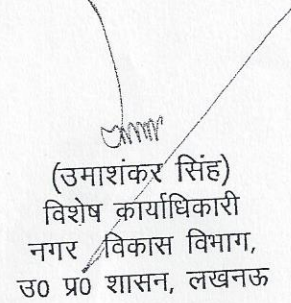 (उमाशंकर सिंह)
विशेष कार्याधिकारी
नगर विकास विभाग,
उ0 प्र0 शासन, लखनऊ